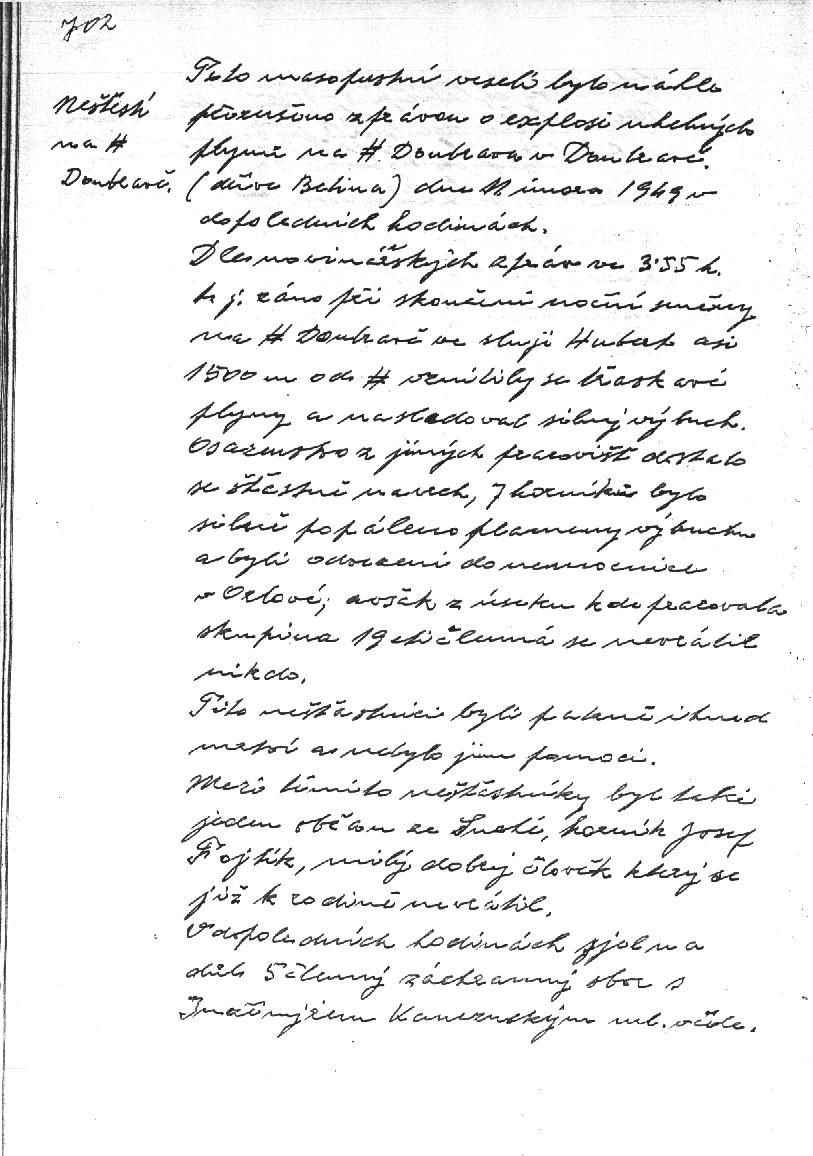 702
Neštěstí
na #
Doubravě.
Toto masopustní veselí bylo náhle
přerušeno zprávou o explosi uhelných
plynů na # Doubrava v Doubravě.
(dříve Betina) dne 11 února 1949 v
dopoledních hodinách.
Dle novinářských zpráv ve 3.55 h.
t.j. ráno při skončení noční směny
na # Doubravě ve sloji Hubert asi
1500 m od # vznítily se třaskavé
plyny a nasledoval silný výbuch.
Osazenstvo z jiných pracovišť dostalo
se šťastně navrch, 7 horníků bylo
silně popáleno plameny výbuchu
a byli odvezeni do nemocnice
v Orlové; avšak z úseku kde pracovala
skupina 19cti členná se nevrátil
nikdo.
Tito nešťastníci byli patrně ihned
mrtví a nebylo jim pomoci.
Mezi těmito nešťastníky byl také
jeden občan ze Suché, horník Josef
Fojtík, milý dobrý člověk který se
již k rodině nevrátil.
V dopoledních hodinách sjel na
důl 5členný záchranný sbor s
Inž. Kamerským ml. v čele.